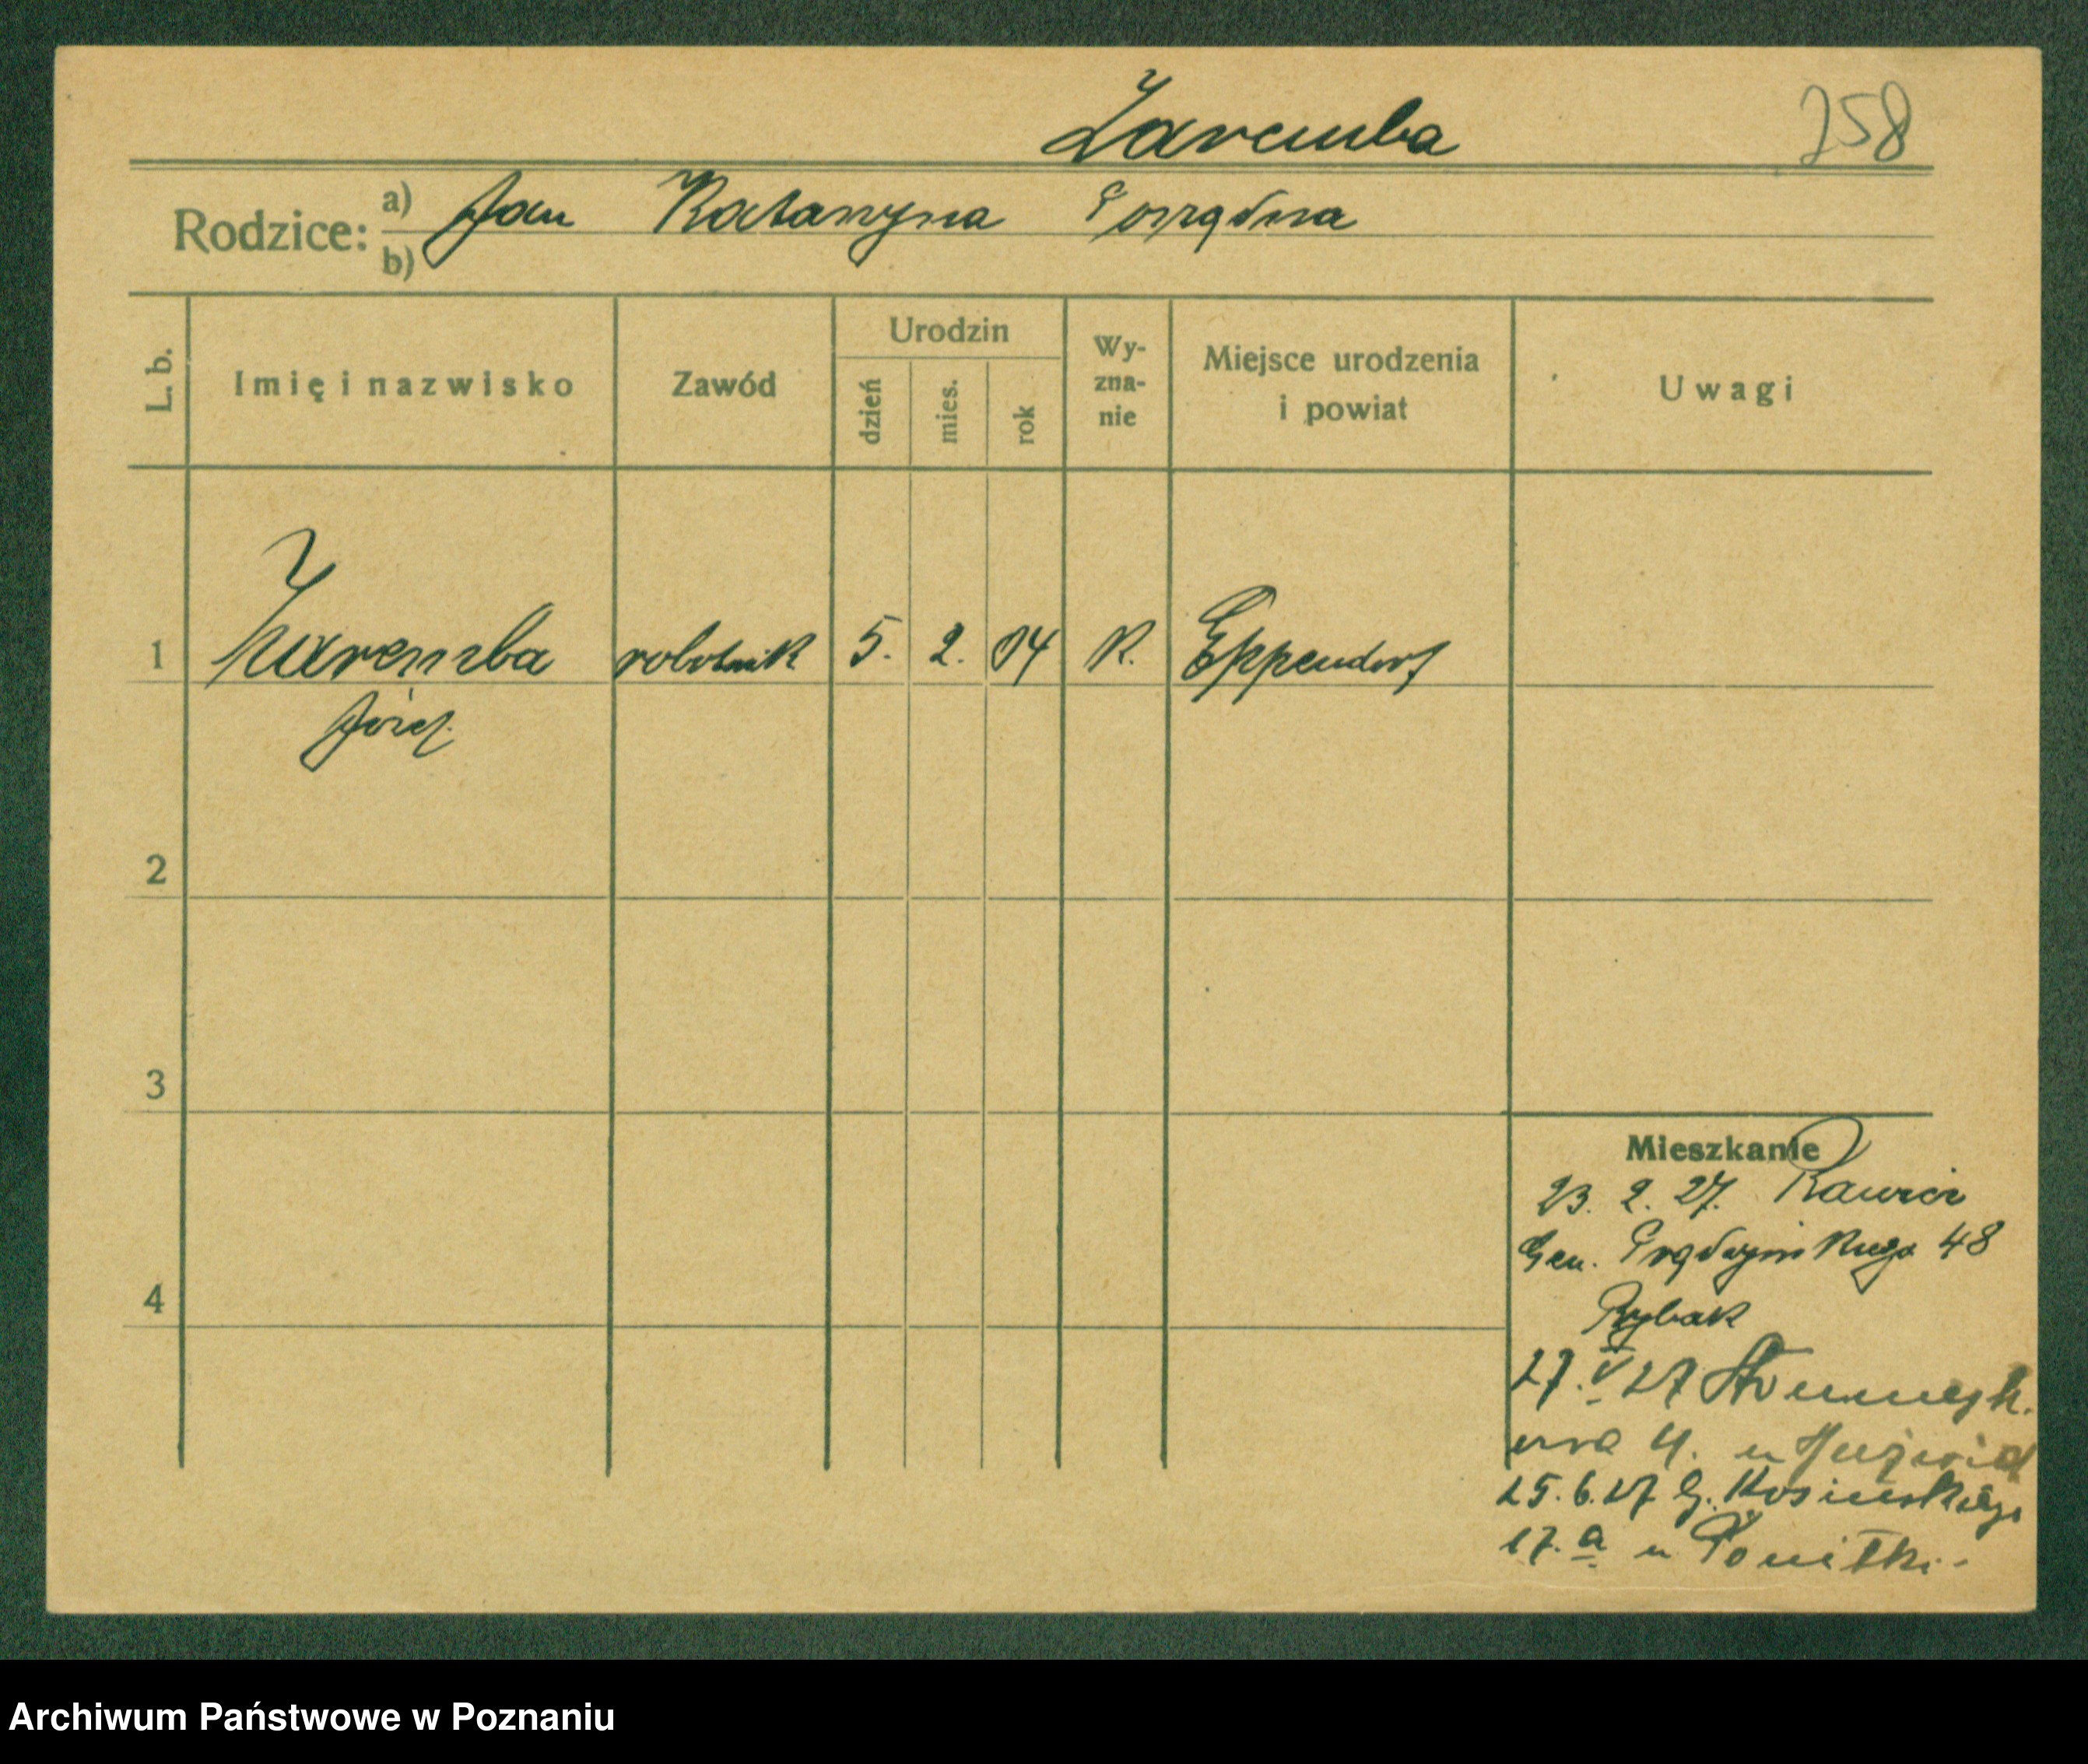 Zaremba 258
Rodzice: a) Jan Katarzyna Porządna
b)
L. b. Imię i nazwisko Zawód Urodzin dzień mies. rok Wy-zna-nie Miejsce urodzenia i powiat Uwagi
1 Zaremba robotnik 5. 2. 04 K. Eppendorf
Józef.
2
3
4
Mieszkanie
23. 2. 27. Rawicz
Gen. Prądzyńskiego 48
Rybak
27. V 27
4. u
25.6.27 G. Kosińskiego
17.a u
Archiwum Państwowe w Poznaniu